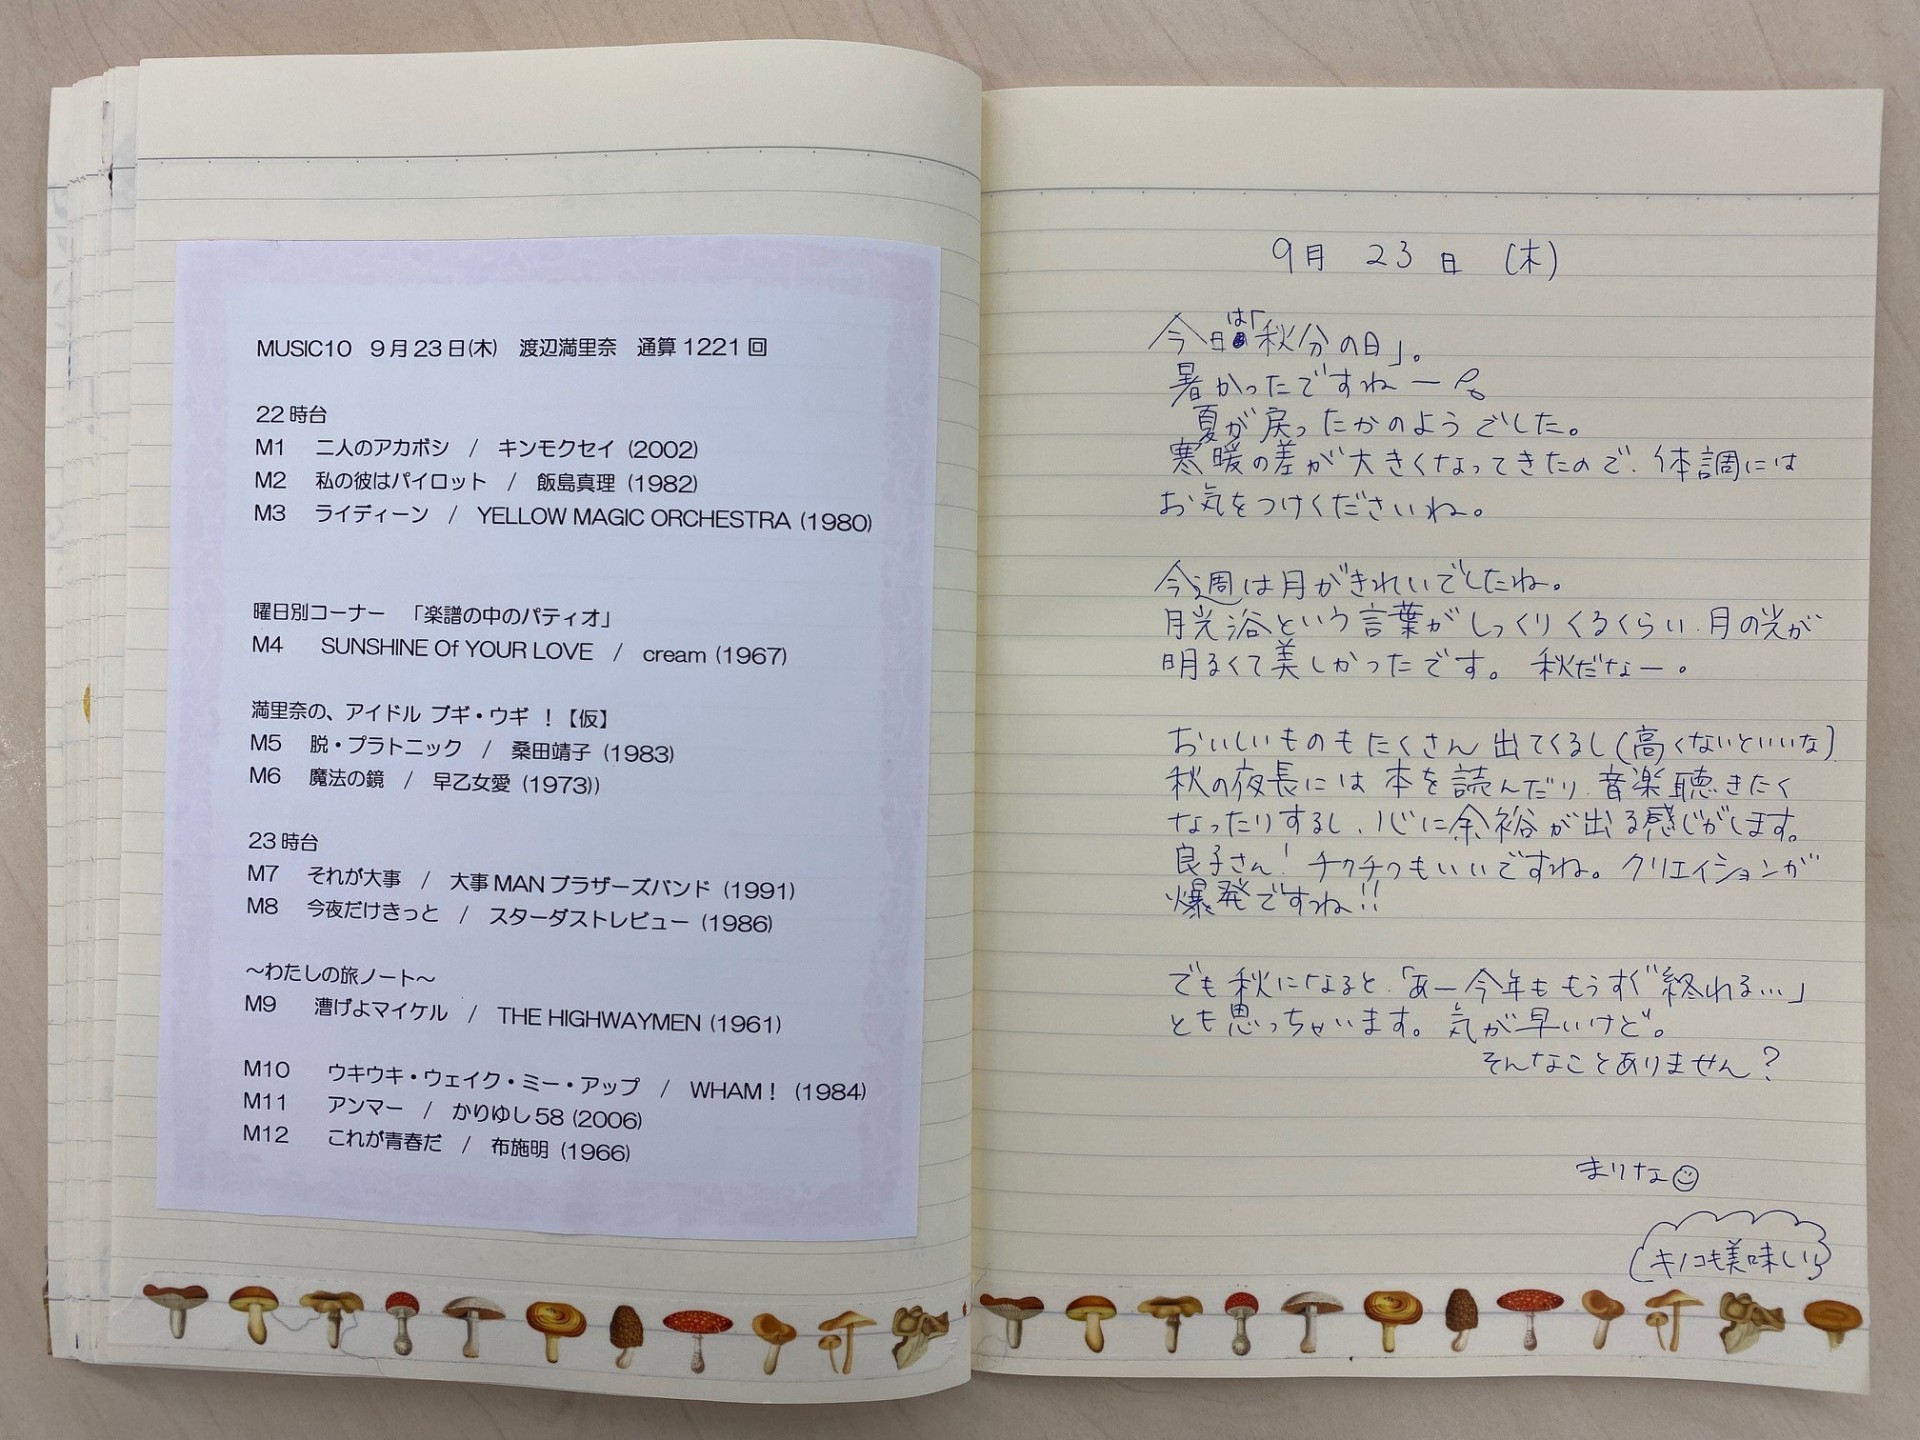 MUSIC10 9月23日(木) 渡辺満里奈 通算1221回
22時台
M1 二人のアカボシ / キンモクセイ (2002)
M2 私の彼はパイロット / 飯島真理 (1982)
M3 ライディーン / YELLOW MAGIC ORCHESTRA (1980)
曜日別コーナー 「楽譜の中のパティオ」
M4 SUNSHINE Of YOUR LOVE / cream (1967)
満里奈の、アイドル ブギ・ウギ ！【仮】
M5 脱・プラトニック / 桑田靖子 (1983)
M6 魔法の鏡 / 早乙女愛 (1973))
23時台
M7 それが大事 / 大事MANブラザーズバンド (1991)
M8 今夜だけきっと / スターダストレビュー (1986)
～わたしの旅ノート～
M9 漕げよマイケル / THE HIGHWAYMEN (1961)
M10 ウキウキ・ウェイク・ミー・アップ / WHAM！ (1984)
M11 アンマー / かりゆし58 (2006)
M12 これが青春だ / 布施明 (1966)
9月 23日 (木)
今日は「秋分の日」。
暑かったですねー
夏が戻ったかのようでした。
寒暖の差が大きくなってきたので、体調には
お気をつけくださいね。
今週は月がきれいでしたね。
月光浴という言葉がしっくりくるくらい、月の光が
明るくて美しかったです。 秋だなー。
おいしいものもたくさん出てくるし(高くないといいな)
秋の夜長には本を読んだり、音楽聴きたく
なったりするし、心に余裕が出る感じがします。
良子さん！チクチクもいいですね。クリエイションが
爆発ですね!!
でも秋になると、「あー今年ももうすぐ終れる…」
とも思っちゃいます。気が早いけど。
そんなことありません？
まりな
キノコも美味しい